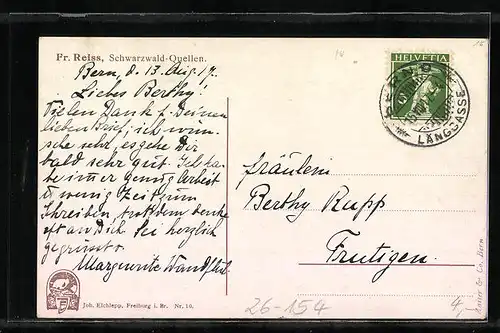 Fr. Reiss, Schwarzwald-Quellen.
Bern, d. 13. Aug. 17.
Liebes Berthy!
Vielen Dank f. Deinen
lieben Brief, ich wün-
sche sehr, es gehe Dir
bald sehr gut. Ich ha-
be immer genug Arbeit
u. wenig Zeit zum
Schreiben, trotzdem denke
oft an Dich. Sei herzlich
gegrüsst
Marguerite
Joh. Elchlepp, Freiburg i. Br. Nr. 10.
HELVETIA
BERN
LÄNGGASSE
Fräulein
Berthy Rupp
Frutigen
& Co. Bern
26-154
4,-